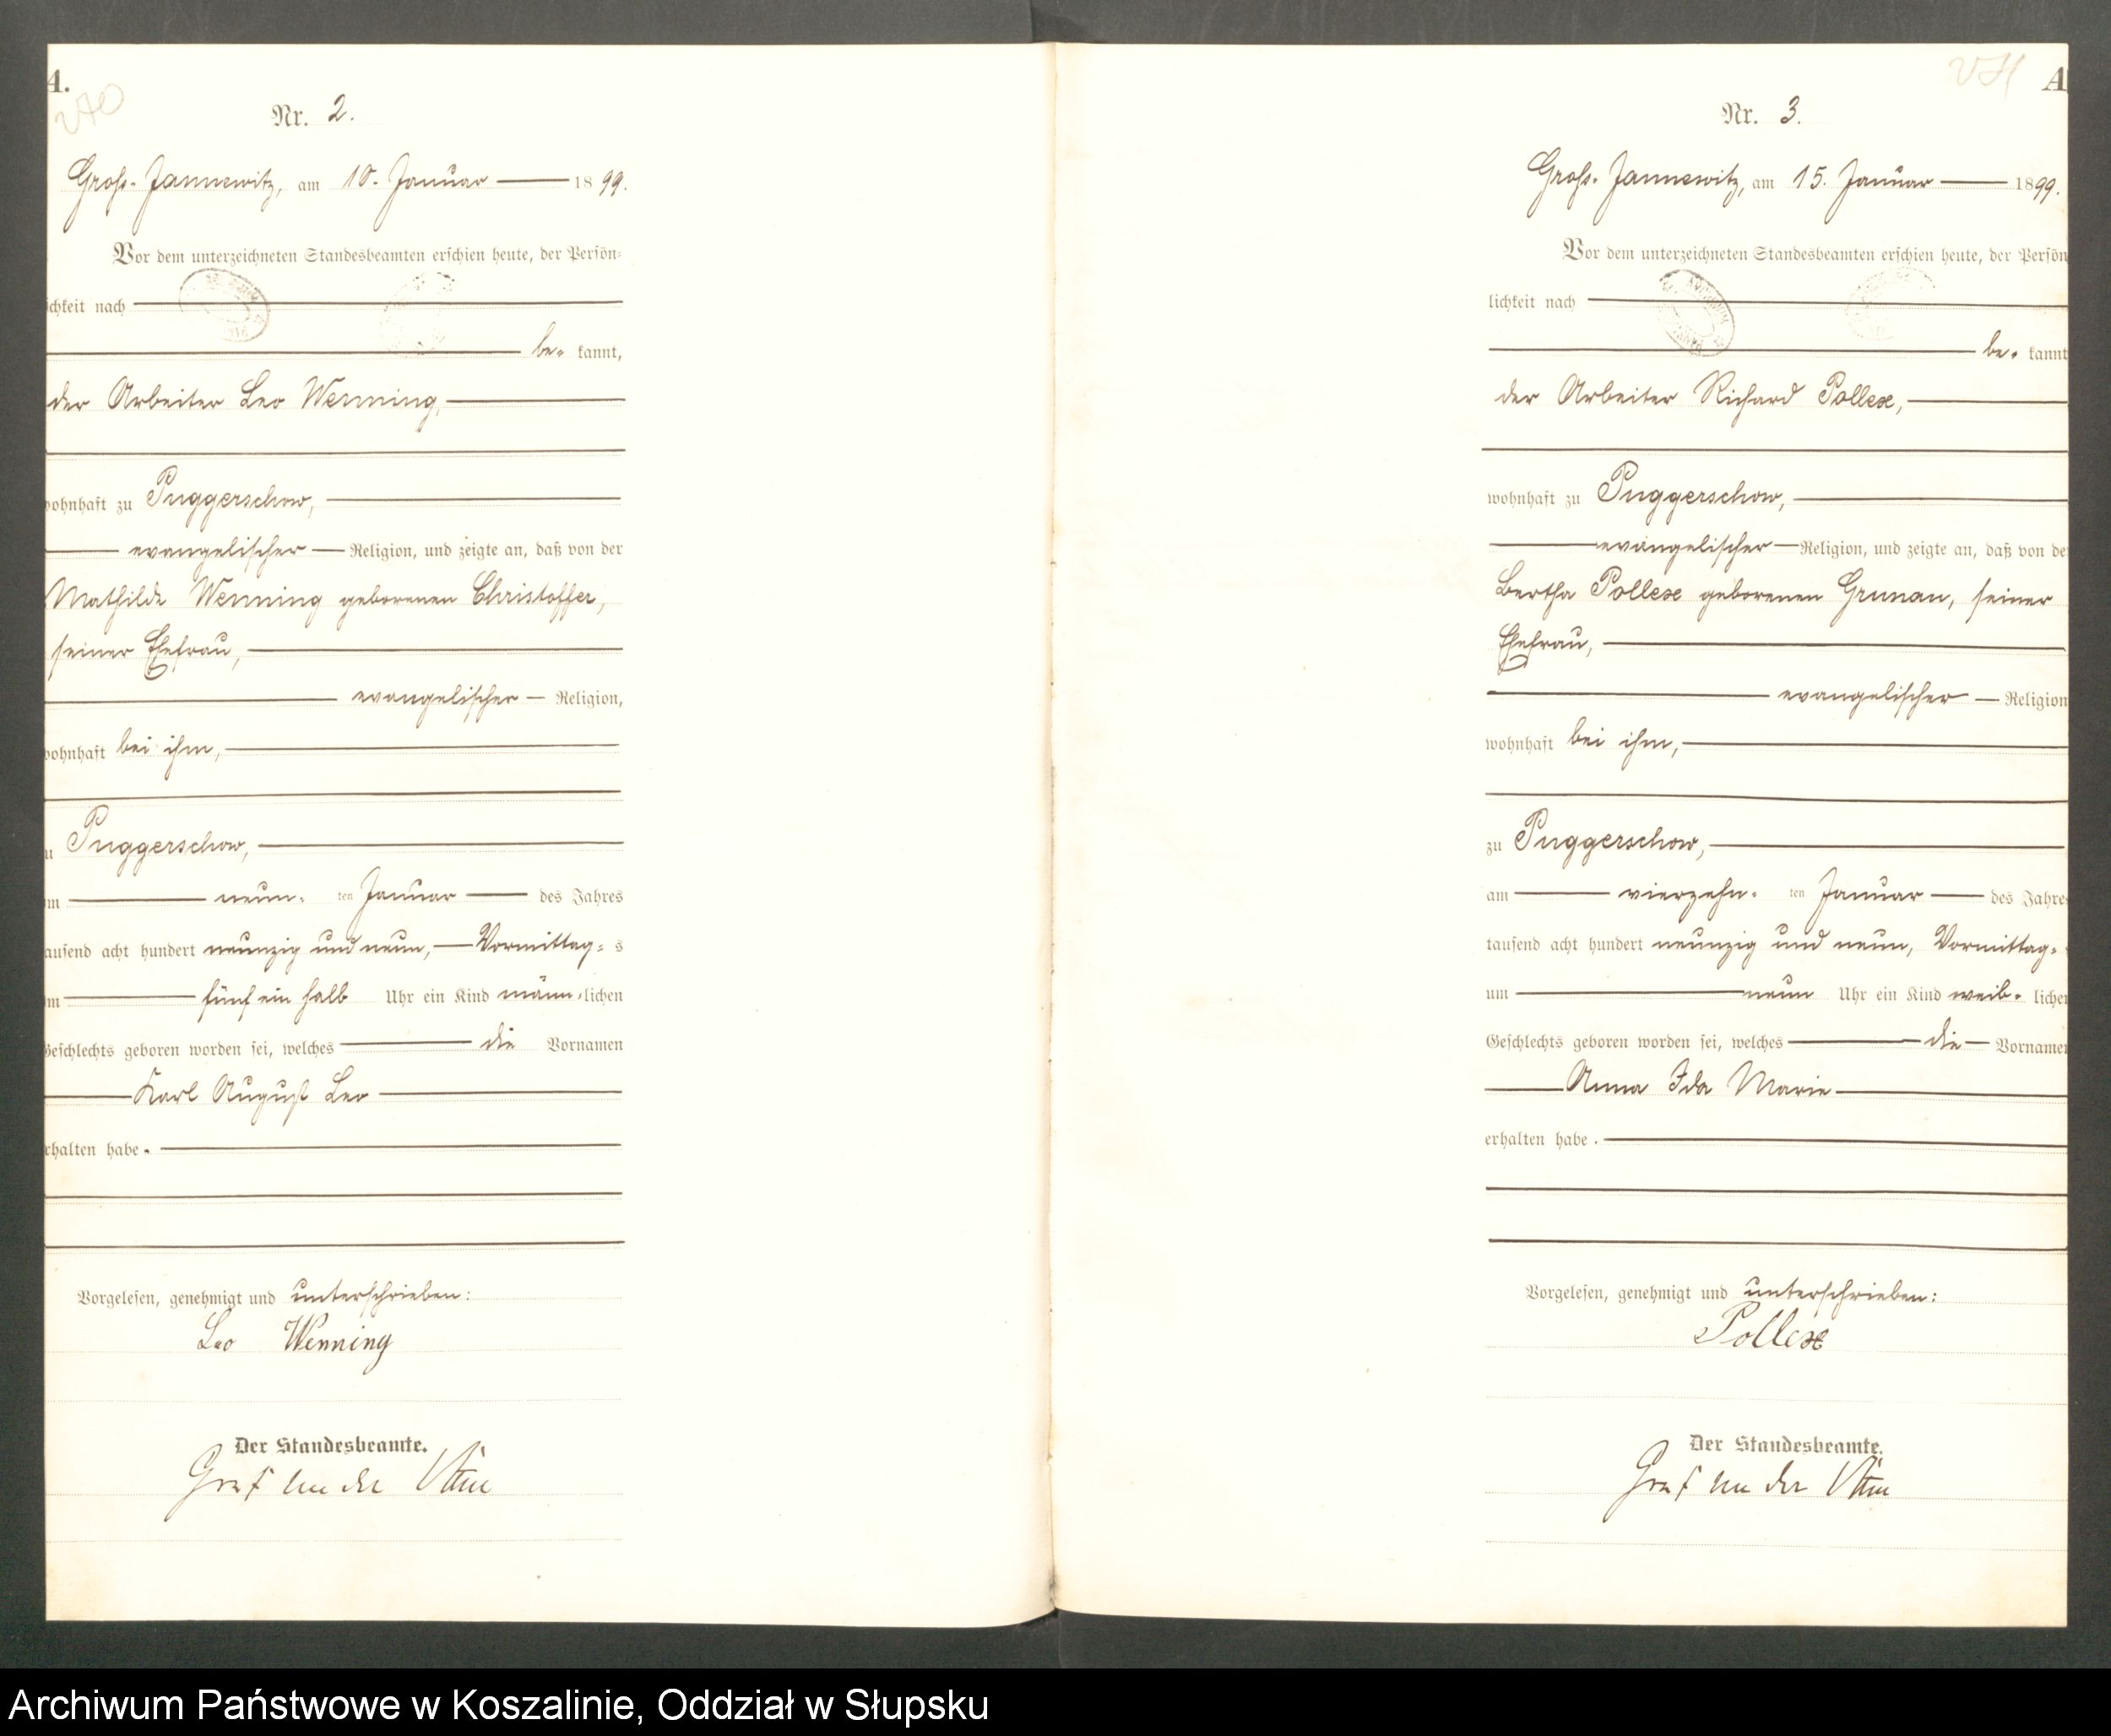 A.
Nr. 2.
Groß-Jannewitz, am 10. Januar 1899.
Vor dem unterzeichneten Standesbeamten erschien heute, der Persön-
ichkeit nach
be- kannt,
der Arbeiter Leo Wenning,
wohnhaft zu Puggerschow,
evangelischer Religion, und zeigte an, daß von der
Mathilde Wenning geborenen Christoffer,
seiner Ehefrau,
evangelischer Religion,
wohnhaft bei ihm,
zu Puggerschow,
am neun- ten Januar des Jahres
tausend acht hundert neunzig und neun, Vormittag- s
um fünf ein halb Uhr ein Kind männ-lichen
Geschlechts geboren worden sei, welches die Vornamen
Karl August Leo
erhalten habe.
Vorgelesen, genehmigt und unterschrieben:
Leo Wenning
Der Standesbeamte.
Graf
A
Nr. 3.
Groß-Jannewitz, am 15. Januar 1899.
Vor dem unterzeichneten Standesbeamten erschien heute, der Persön
lichkeit nach
be- kannt
der Arbeiter Richard Pollex,
wohnhaft zu Puggerschow,
evangelischer Religion, und zeigte an, daß von de
Bertha Pollex geborenen Grunau, seiner
Ehefrau,
evangelischer Religion
wohnhaft bei ihm,
zu Puggerschow,
am vierzehn- ten Januar des Jahre
tausend acht hundert neunzig und neun, Vormittag-
um neun Uhr ein Kind weib- liche
Geschlechts geboren worden sei, welches die Vorname
Anna Ida Marie
erhalten habe.
Vorgelesen, genehmigt und unterschrieben:
Pollex
Der Standesbeamte.
Graf
Archiwum Państwowe w Koszalinie, Oddział w Słupsku